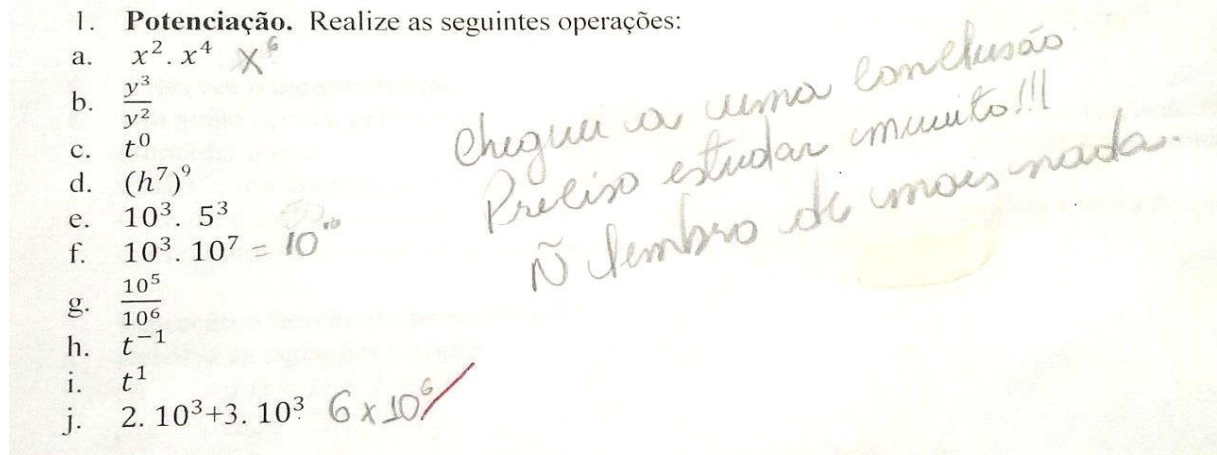 1. Potenciação. Realize as seguintes operações:
a. x². x⁴ X⁶
b. y³/y²
c. t⁰
d. (h⁷)⁹
e. 10³. 5³
f. 10³. 10⁷ = 10¹⁰
g. 10⁵/10⁶
h. t⁻¹
i. t¹
j. 2. 10³+3. 10³ 6 x 10⁶
Cheguei a uma conclusão
Preciso estudar muuito!!!
Ñ lembro de mais nada.